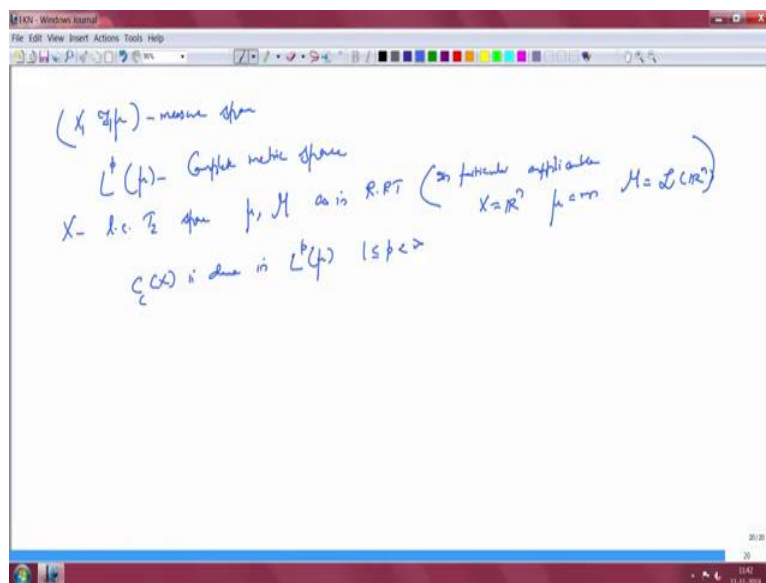 EKN - Windows Journal
File Edit View Insert Actions Tools Help
(X, 𝓕, μ) - measure space
L^p(μ) - Complete metric space
X - l.c. T₂ space μ, M as in R.R.T (In particular applicable X = ℝⁿ μ = m M = 𝓛(ℝⁿ))
C_c(X) is dense in L^p(μ) 1 ≤ p < ∞
20/20
20
11:42